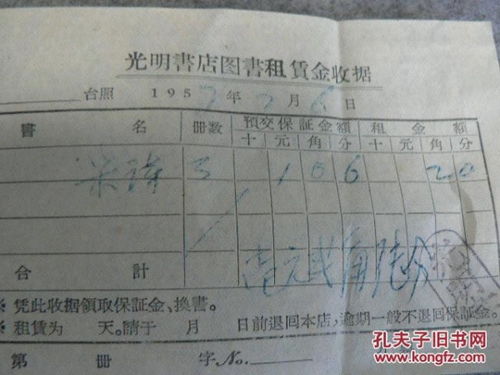 光明書店图書租賃金收据
台照 1957年 月6日
書 名 冊数 預交保証金額 租金額
十元角分 十元角分
3 1 0 6 20
合計 壹元 角陆分
※ 凭此收据領取保証金、換書。
※ 租賃为 天。請于 月 日前退回本店,逾期一般不退回保証金。
第 冊 字 No.
孔夫子旧书网
www.kongfz.com